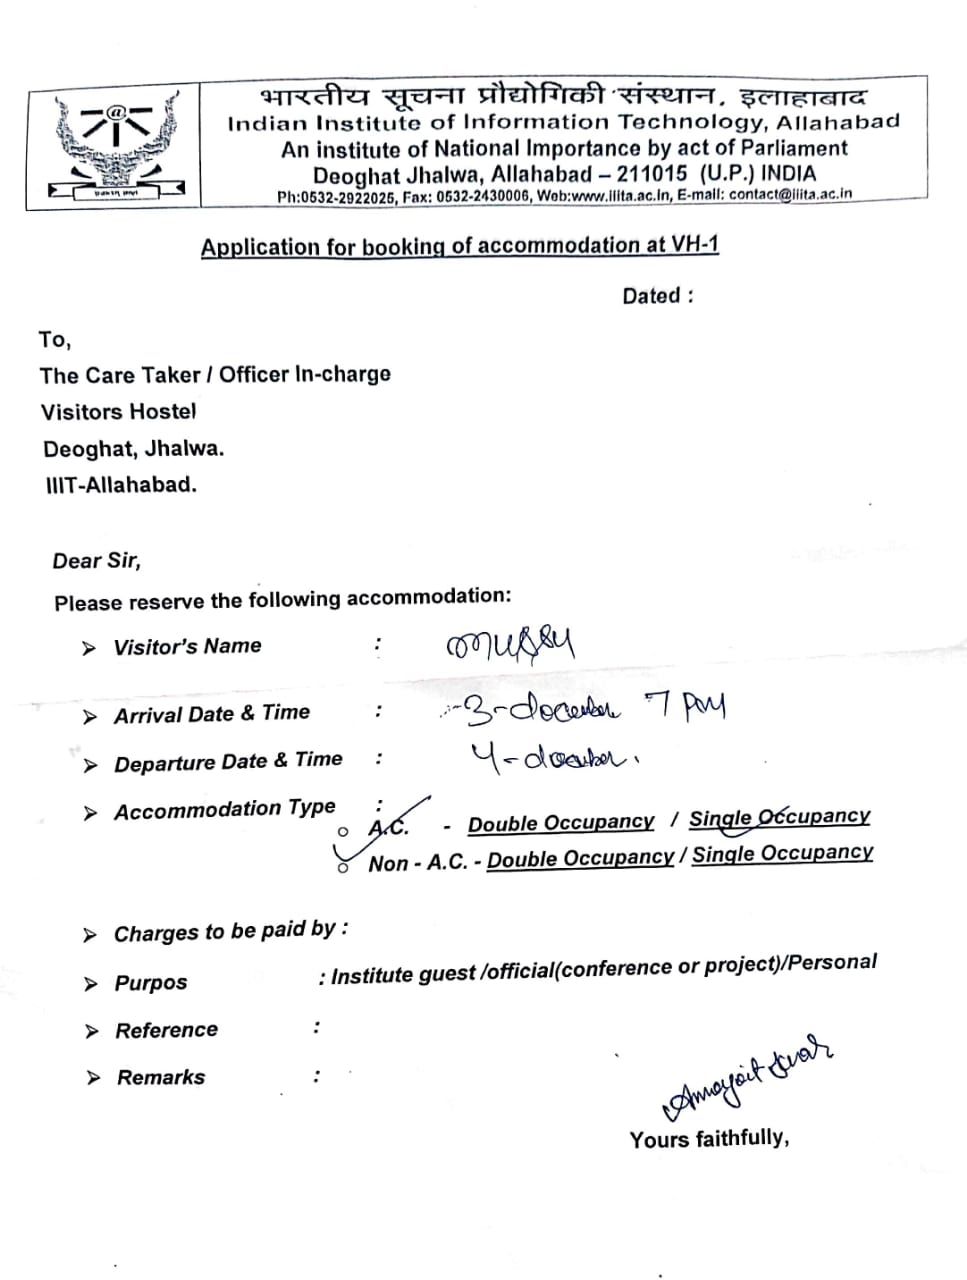 भारतीय सूचना प्रौद्योगिकी संस्थान, इलाहाबाद
Indian Institute of Information Technology, Allahabad
An institute of National Importance by act of Parliament
Deoghat Jhalwa, Allahabad – 211015 (U.P.) INDIA
Ph:0532-2922025, Fax: 0532-2430006, Web:www.iiita.ac.in, E-mail: contact@iiita.ac.in
Application for booking of accommodation at VH-1
Dated :
To,
The Care Taker / Officer In-charge
Visitors Hostel
Deoghat, Jhalwa.
IIIT-Allahabad.
Dear Sir,
Please reserve the following accommodation:
➢ Visitor's Name :
➢ Arrival Date & Time : 3-december 7 pm
➢ Departure Date & Time : 4-december.
➢ Accommodation Type :
o A.C. - Double Occupancy / Single Occupancy
o Non - A.C. - Double Occupancy / Single Occupancy
➢ Charges to be paid by :
➢ Purpos : Institute guest /official(conference or project)/Personal
➢ Reference :
➢ Remarks :
Yours faithfully,